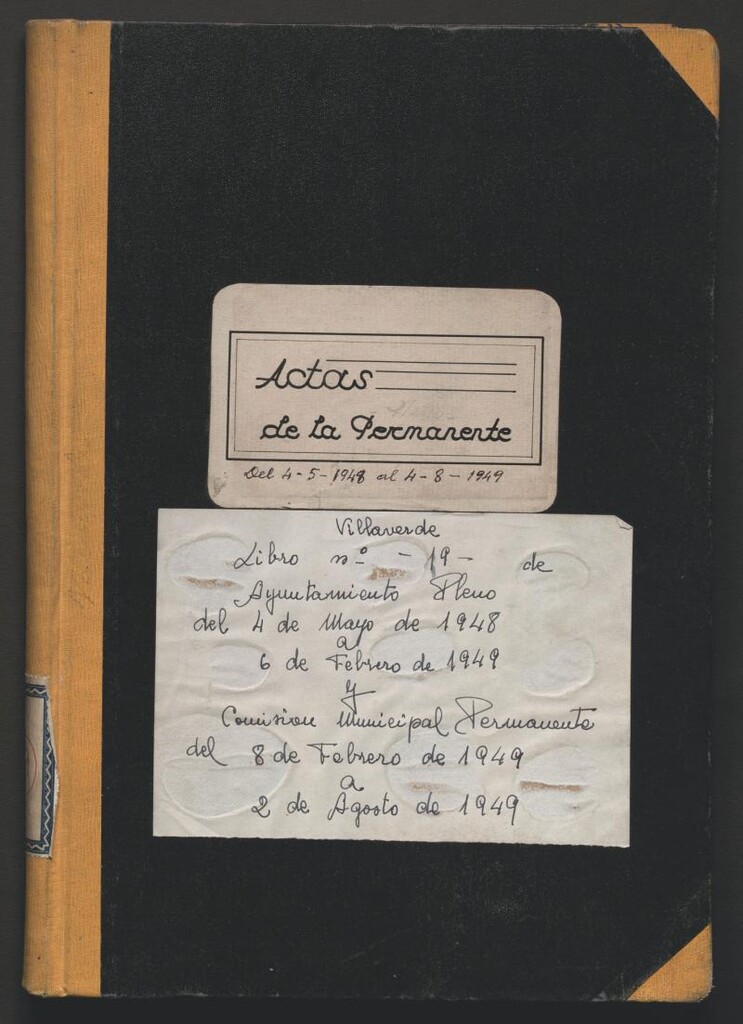 Actas
de la Permanente
Del 4-5-1948 al 4-8-1949
Villaverde
Libro nº -19- de
Ayuntamiento Pleno
del 4 de Mayo de 1948
a
6 de Febrero de 1949
y
Comision Municipal Permanente
del 8 de Febrero de 1949
a
2 de Agosto de 1949